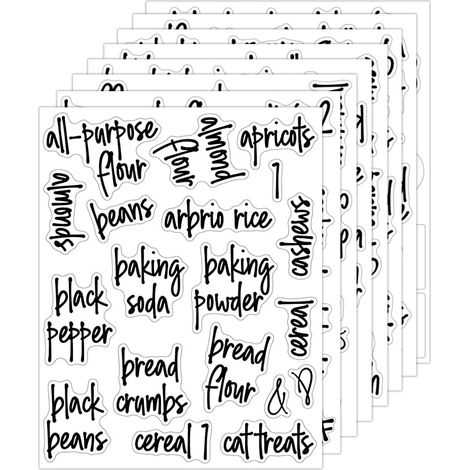 all-purpose
flour
almond
flour
apricots
1
almonds
beans
arbrio rice
cashews
baking
soda
baking
powder
black
pepper
cereal
bread
crumbs
bread
flour
&
D
black
beans
cereal 1
cat treats